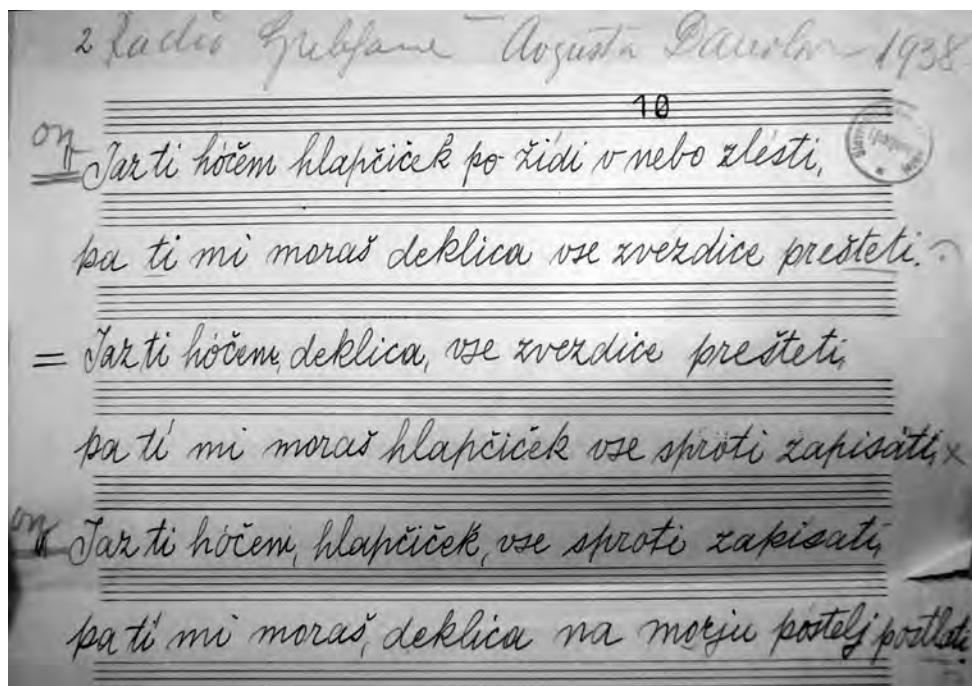 2 Radio Ljubljana Avgusta Danilova 1938
10
on Jaz ti hóčem hlapčiček po žídi v nebo zlésti,
pa ti mi moraš deklica vse zvezdice prešteti.
= Jaz ti hóčem, deklica, vse zvezdice prešteti,
pa tí mi moraš hlapčiček vse sproti zapisáti, x
on Jaz ti hóčem, hlapčiček, vse sproti zapisati,
pa tí mi moraš, deklica na morju postelj postlati,